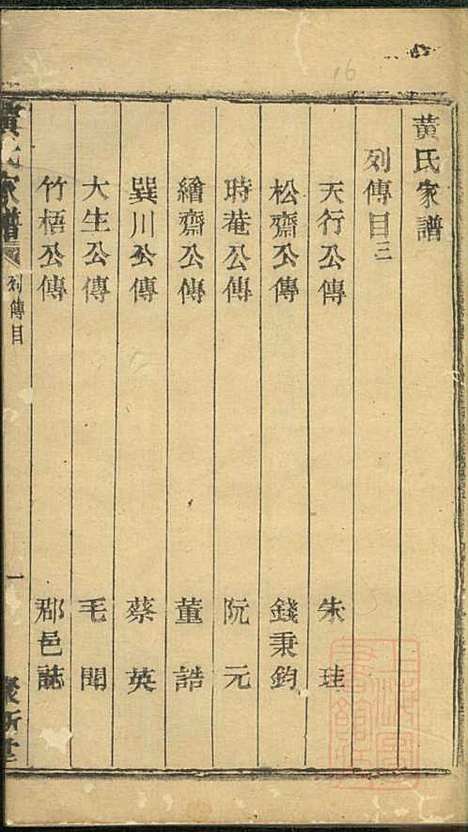 黃氏家譜
列傳目三
天行公傳 朱珪
松齋公傳 錢秉鈞
時菴公傳 阮元
繪齋公傳 董誥
巽川公傳 蔡英
大生公傳 毛聞
竹梧公傳 郡邑誌
黃氏家譜 列傳目 一
16